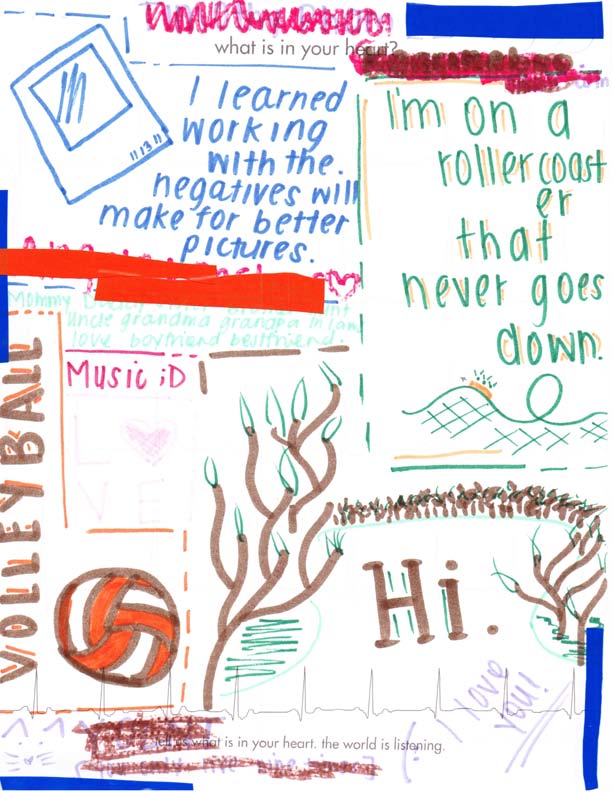 what is in your heart?
"13"
I learned
working
with the.
negatives will
make for better
pictures.
I'm on a
rollercoast
er
that
never goes
down.
Mommy
Uncle grandma grandpa in law
love boyfriend bestfriend.
Music ;D
LO
VE
VOLLEYBALL
Hi.
I love
you!
what is in your heart. the world is listening.